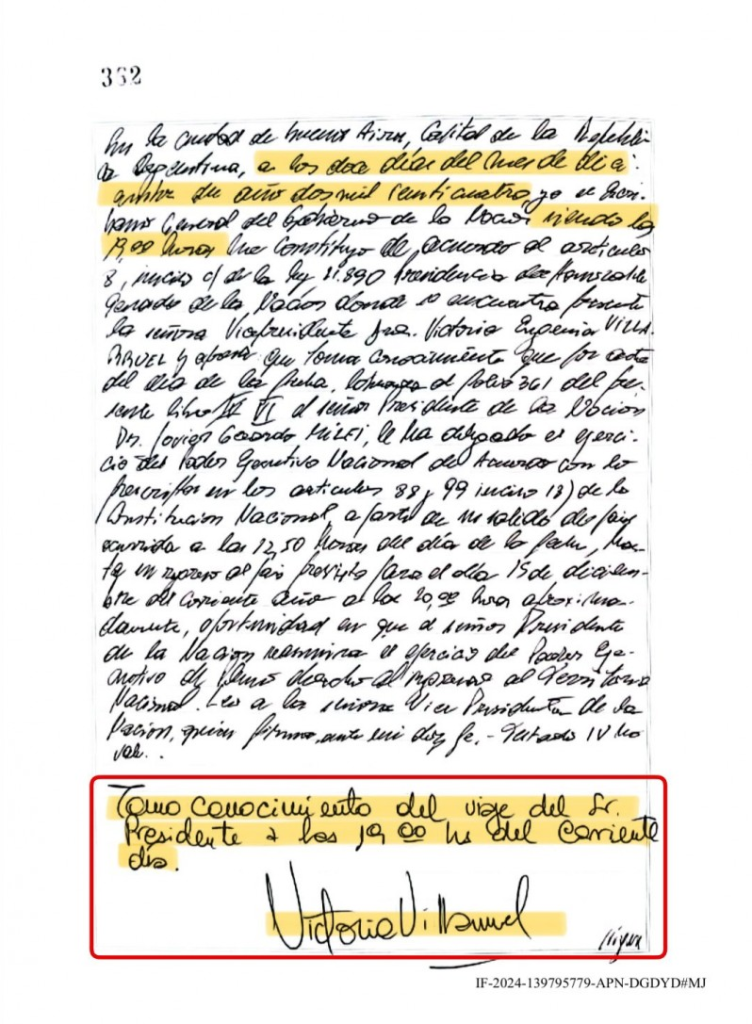 362
En la ciudad de Buenos Aires, Capital de la Repúbli-
ca Argentina, a los doce días del mes de dici-
embre de año dos mil veinticuatro, yo el Escri-
bano General del Gobierno de la Nación siendo las
19,00 horas me constituyo de acuerdo al artículo
8, inciso c/ de la ley 21.890 Presidencia del Honorable
Senado de la Nación donde se encuentra presente
la señora Vicepresidente Dra. Victoria Eugenia VILLA-
RRUEL y a que toma conocimiento que por acta
del día de la fecha, labrada al folio 361 del pre-
sente libro IV VI el señor Presidente de la Nación
Dr. Javier Gerardo MILEI, le ha delegado el ejerci-
cio del Poder Ejecutivo Nacional de Acuerdo con lo
prescripto en los artículos 88 y 99 inciso 18) de la
Constitución Nacional, a partir de su salida del país
ocurrida a las 12,50 horas del día de la fecha, has-
ta su regreso al país previsto para el día 15 de diciem-
bre del corriente año a las 20,00 horas aproxima-
damente, oportunidad en que el señor Presidente
de la Nación reasumirá el ejercicio del Poder Eje-
cutivo de pleno derecho al regresar al Territorio
Nacional. Leo a la señora Vice Presidenta de la
Nación, quien firma, ante mi doy fe.- Testado IV No
vale..
Tomo conocimiento del viaje del Sr.
Presidente a las 19 00 hs del corriente
día.
Victoria Villarruel
IF-2024-139795779-APN-DGDYD#MJ